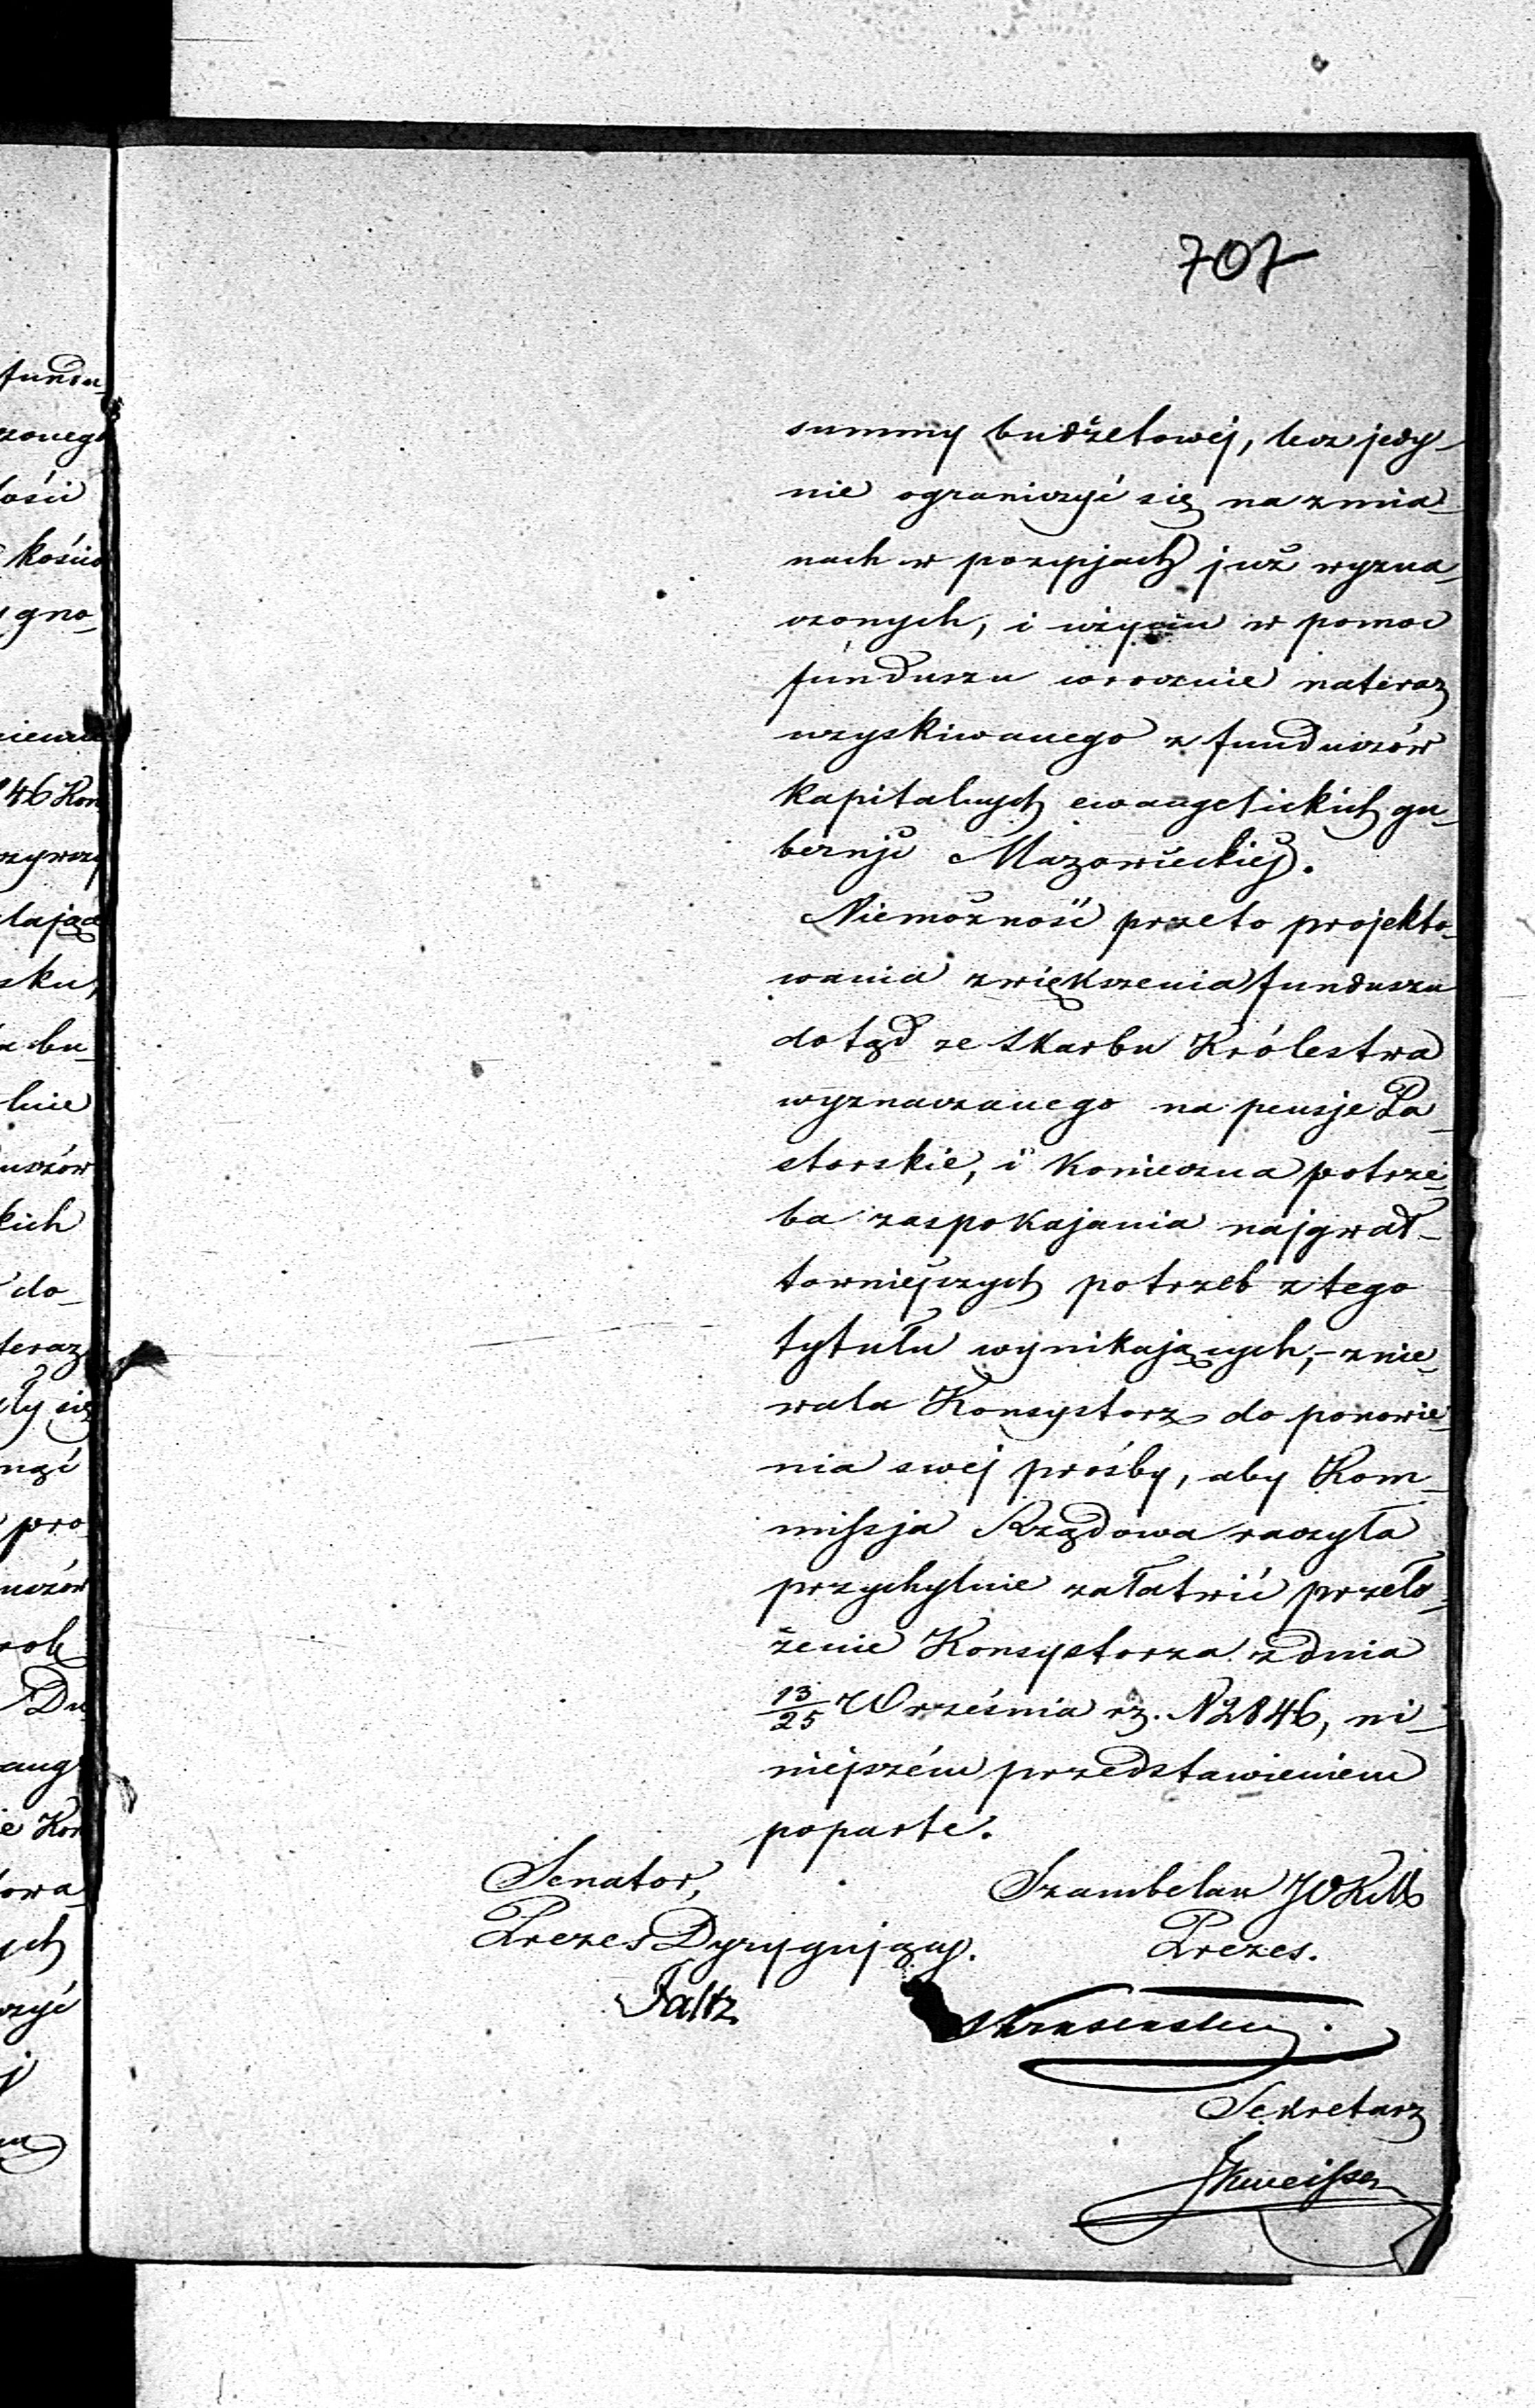 707
summy budżetowej, lecz jedy-
nie ograniczyć się na zmia-
nach w pozycjach już wyzna-
czonych, i użyciu w pomoc
funduszu corocznie nateraz
uzyskiwanego z funduszów
kapitalnych ewangelickich gu-
bernji Mazowieckiej.
Niemożność przeto projekto-
wania zwiększenia funduszu
dotąd ze Skarbu Królestwa
wyznaczanego na pensje Pa-
storskie, i konieczna potrze-
ba zaspokajania najgwał-
towniejszych potrzeb z tego
tytułu wynikających, – znie-
wala Konsystorz do ponowie-
nia swej prośby, aby Kom-
missja Rządowa raczyła
przychylnie załatwić przeło-
żenie Konsystorza z dnia
13/25 Września rz. N 2846, ni-
niejszém przedstawieniem
poparte.
Senator,
Prezes Dyrygujący.
Faltz
Szambelan JWKM
Prezes.
Sekretarz
fundu-
zonego
kości
kościo
gno-
146 Kon
sku,
bu-
lnie
uszów
kich
do-
teraz
ły się
pro-
uszów
Du-